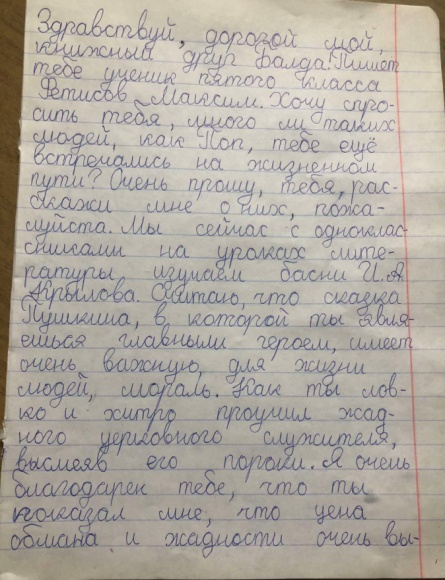 Здравствуй, дорогой мой,
книжный друг Балда! Пишет
тебе ученик пятого класса
Фетисов Максим. Хочу спро-
сить тебя, много ли таких
людей, как Поп, тебе ещё
встречались на жизненном
пути? Очень прошу, тебя, рас-
скажи мне о них, пожа-
луйста. Мы сейчас с одноклас-
сниками на уроках лите-
ратуры изучаем басни И.А.
Крылова. Считаю, что сказка
Пушкина, в которой ты явля-
ешься главными героем, имеет
очень важную, для жизни
людей, мораль. Как ты лов-
ко и хитро проучил жад-
ного церковного служителя,
высмеяв его пороки. Я очень
благодарен тебе, что ты
показал мне, что цена
обмана и жадности очень вы-